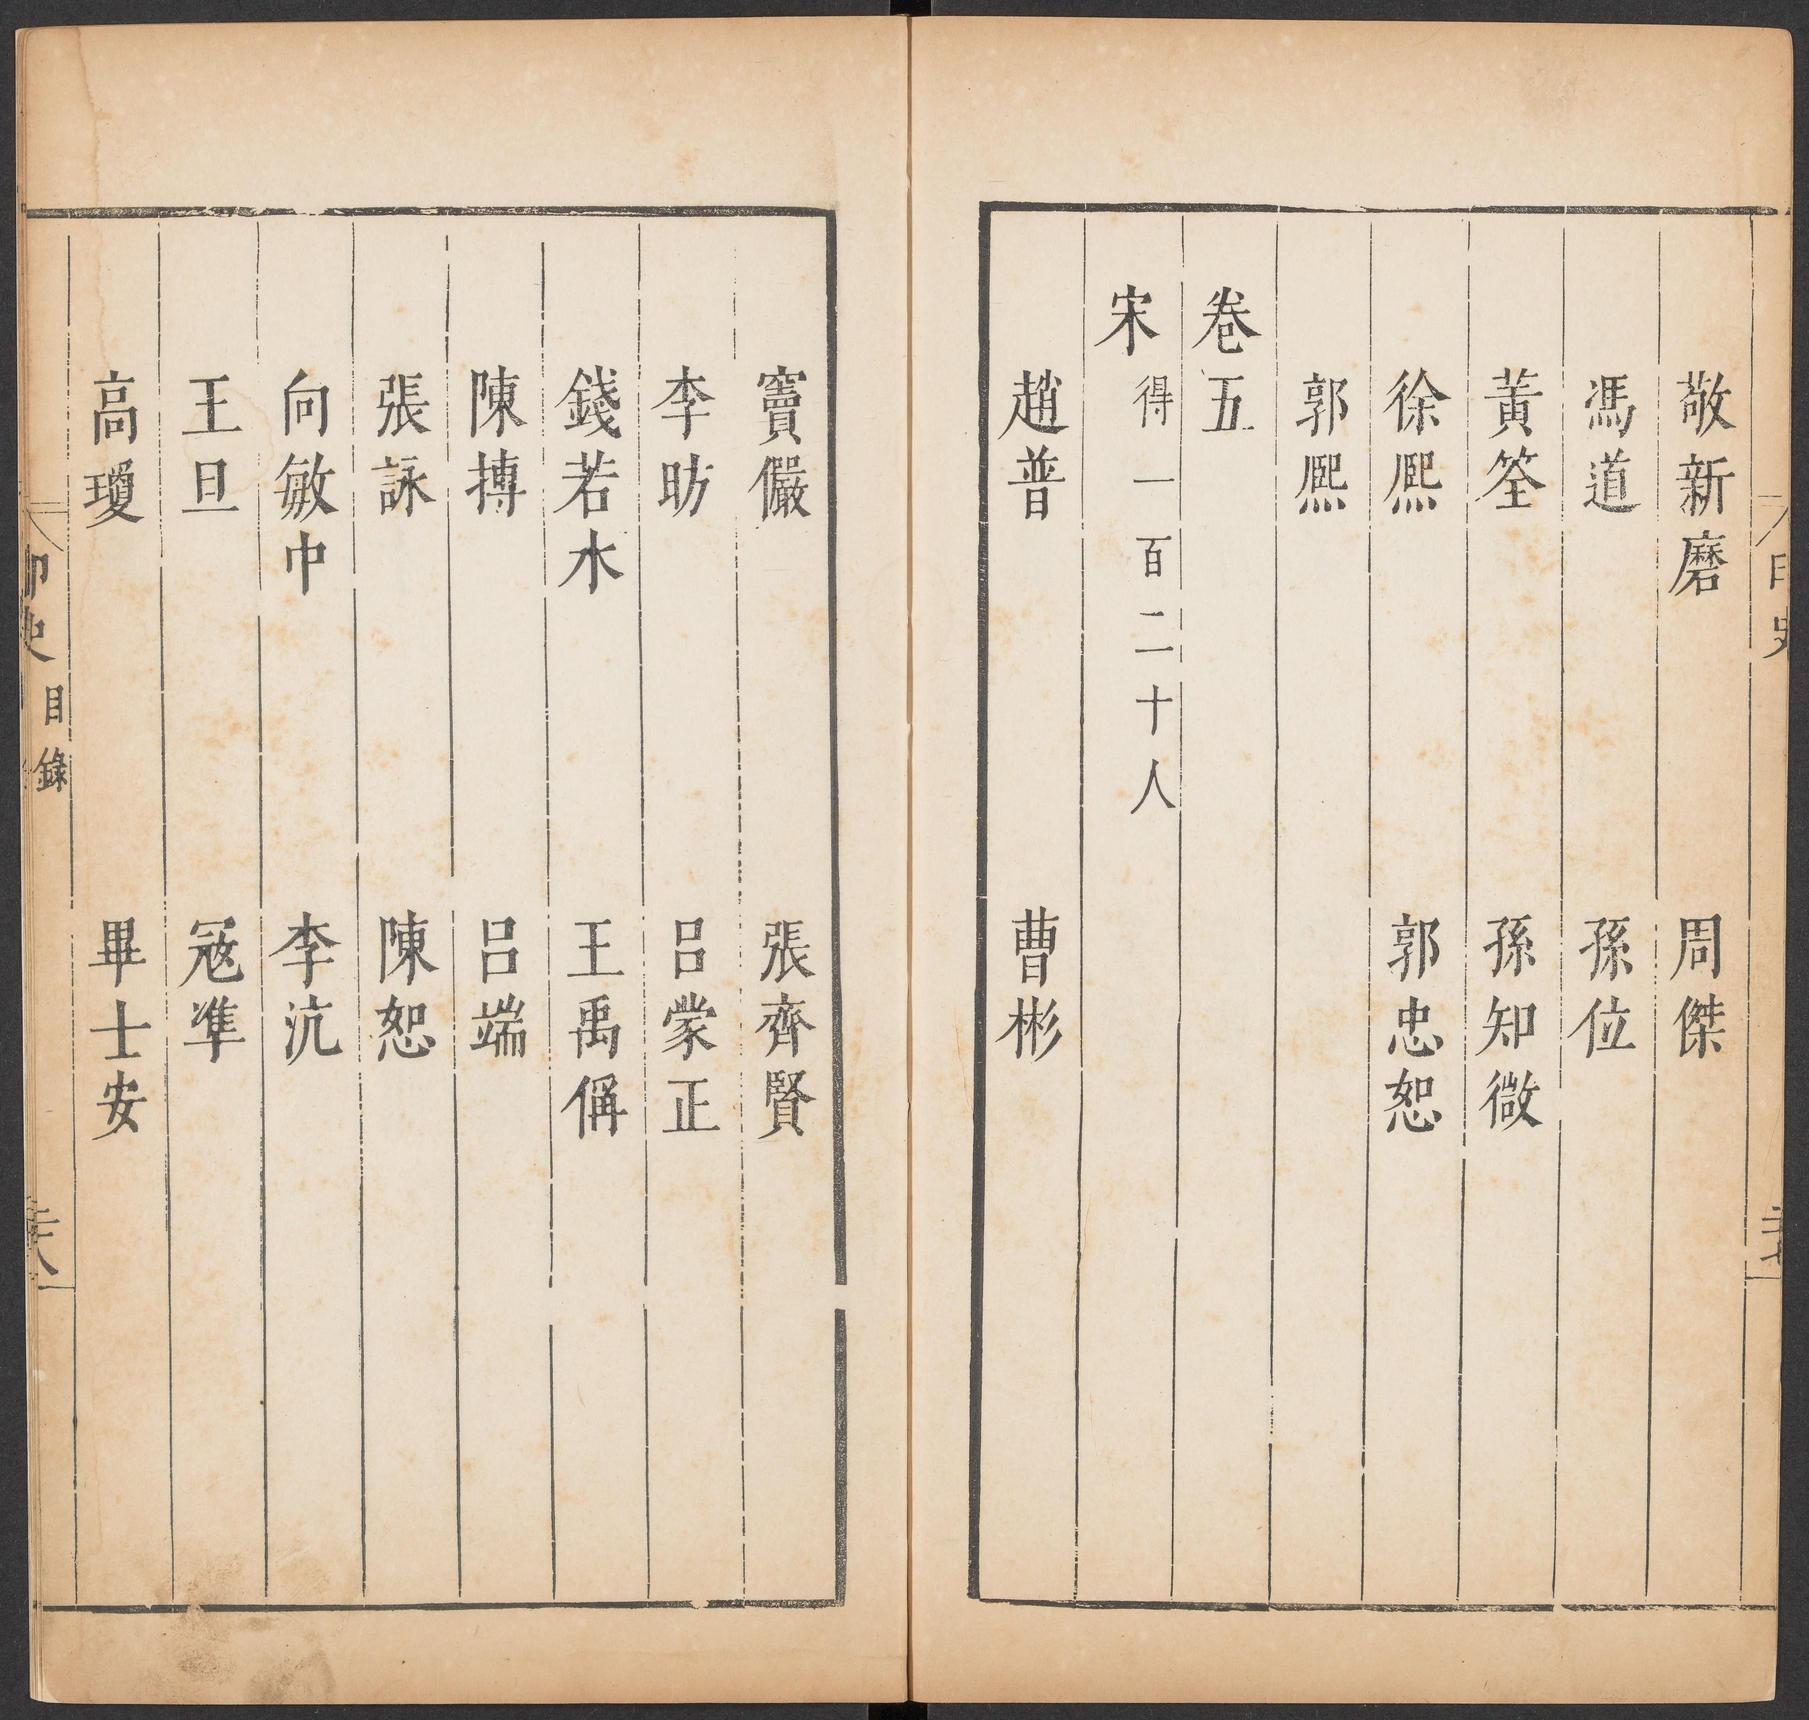 敬新磨 周傑
馮道 孫位
黃筌 孫知微
徐熙 郭忠恕
郭熙
卷五
宋 得一百二十人
趙普 曹彬
竇儼 張齊賢
李昉 呂蒙正
錢若水 王禹偁
陳摶 呂端
張詠 陳恕
向敏中 李沆
王旦 冦準
高瓊 畢士安
印史 目錄